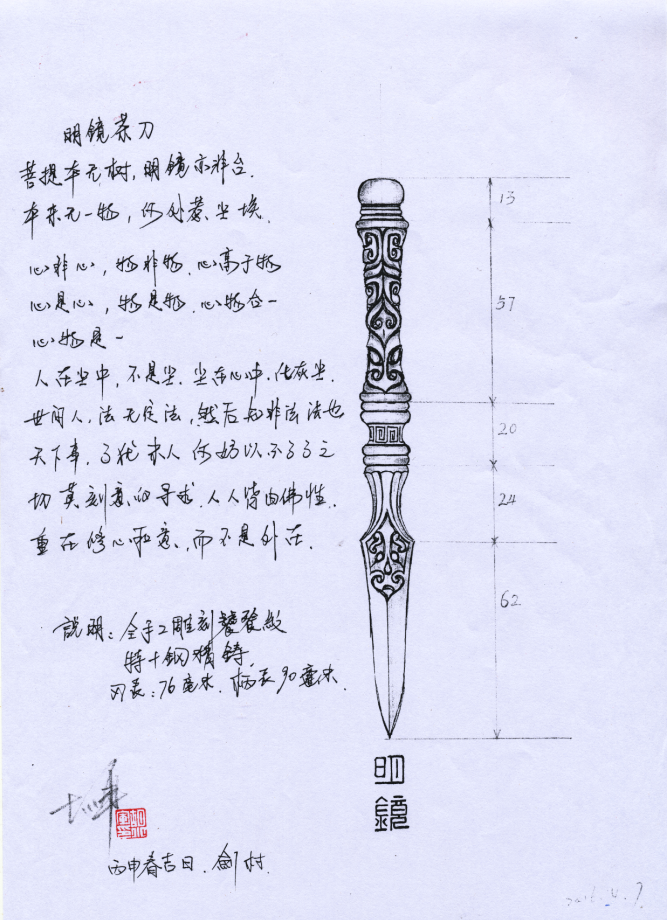 明镜茶刀
菩提本无树,明镜亦非台.
本来无一物,何处着尘埃.
心非心,物非物.心高于物
心是心,物是物.心物合一
心物是一
人在尘中,不是尘.尘在心中.化灰尘.
世间人,法无定法,然后知非法法也
天下事,了犹未人何妨以不了了之
切莫刻意的寻求.人人皆由佛性.
重在修心和意,而不是外在.
説明:全手工雕刻饕餮紋
特十钢精铸
刃長:76毫米.柄長90毫米.
丙申春吉日.劍村.
13
57
20
24
62
明
鏡